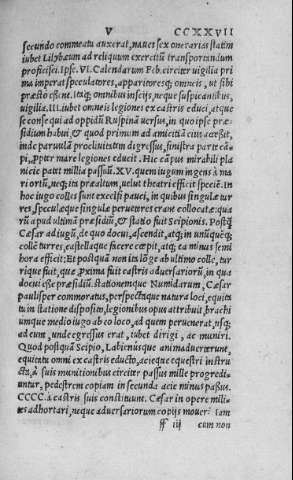 V CCXXVII
secundo commeatu auxerat, naues sex onerarias statim
iubet Lilybæum ad reliquum exercitũ transportandum
proficisci. Ipse. VI. Calendarum Feb. circiter uigilia pri
ma imperat speculatores, apparitoresq; omneis, ut sibi
præsto essent. Itaq; omnibus insciis, neq; suspicantibus,
uigilia. III. iubet omneis legiones ex castris educi, atque
se consequi ad oppidũ Ruspinã uersus, in quo ipse præ-
sidium habuit, & quod primum ad amicitiã eius accessit,
inde paruulã procliuitatem digressus, sinistra parte cã=
pi, propter mare legiones educit. Hic cãpus mirabili pla
nicie patet millia passuũ. XV. quem iugum ingens à ma
ri ortũ, neq; ita præaltum, uelut theatri efficit speciẽ. In
hoc iugo colles sunt excelsi pauci, in quibus singulæ tur
res, speculæque singulæ perueteres erant collocatæ: qua
rũ apud ultimã præsidiũ, & statio fuit Scipionis. Postq̃
Cæsar ad iugũ, de quo docui, ascendit, atq; in unũquẽq;
collẽ turres, castellaque facere cœpit, atq; ea minus semi
hora effecit: Et postquã non ita lõge ab ultimo colle, tur
rique fuit, quæ proxima fuit castris aduersariorũ, in qua
docui esse præsidiũ, stationemque Numidarum, Cæsar
paulisper commoratus, perspectaque natura loci, equita
tu in statione disposito, legionibus opus attribuit, brachi
umque medio iugo ab eo loco, ad quem peruenerat, usq;
ad eum, unde egressus erat, iubet dirigi, ac muniri.
Quod postquã Scipio, Labienusque animaduerterunt,
equitatu omni ex castris educto, acieque equestri instru
cta, à suis munitionibus circiter passus mille progredi=
untur, pedestrem copiam in secunda acie minus passus.
CCCC. à castris suis constituunt. Cæsar in opere mili=
tes adhortari, neque aduersariorum copijs moueri. Iam
ff iij cum non